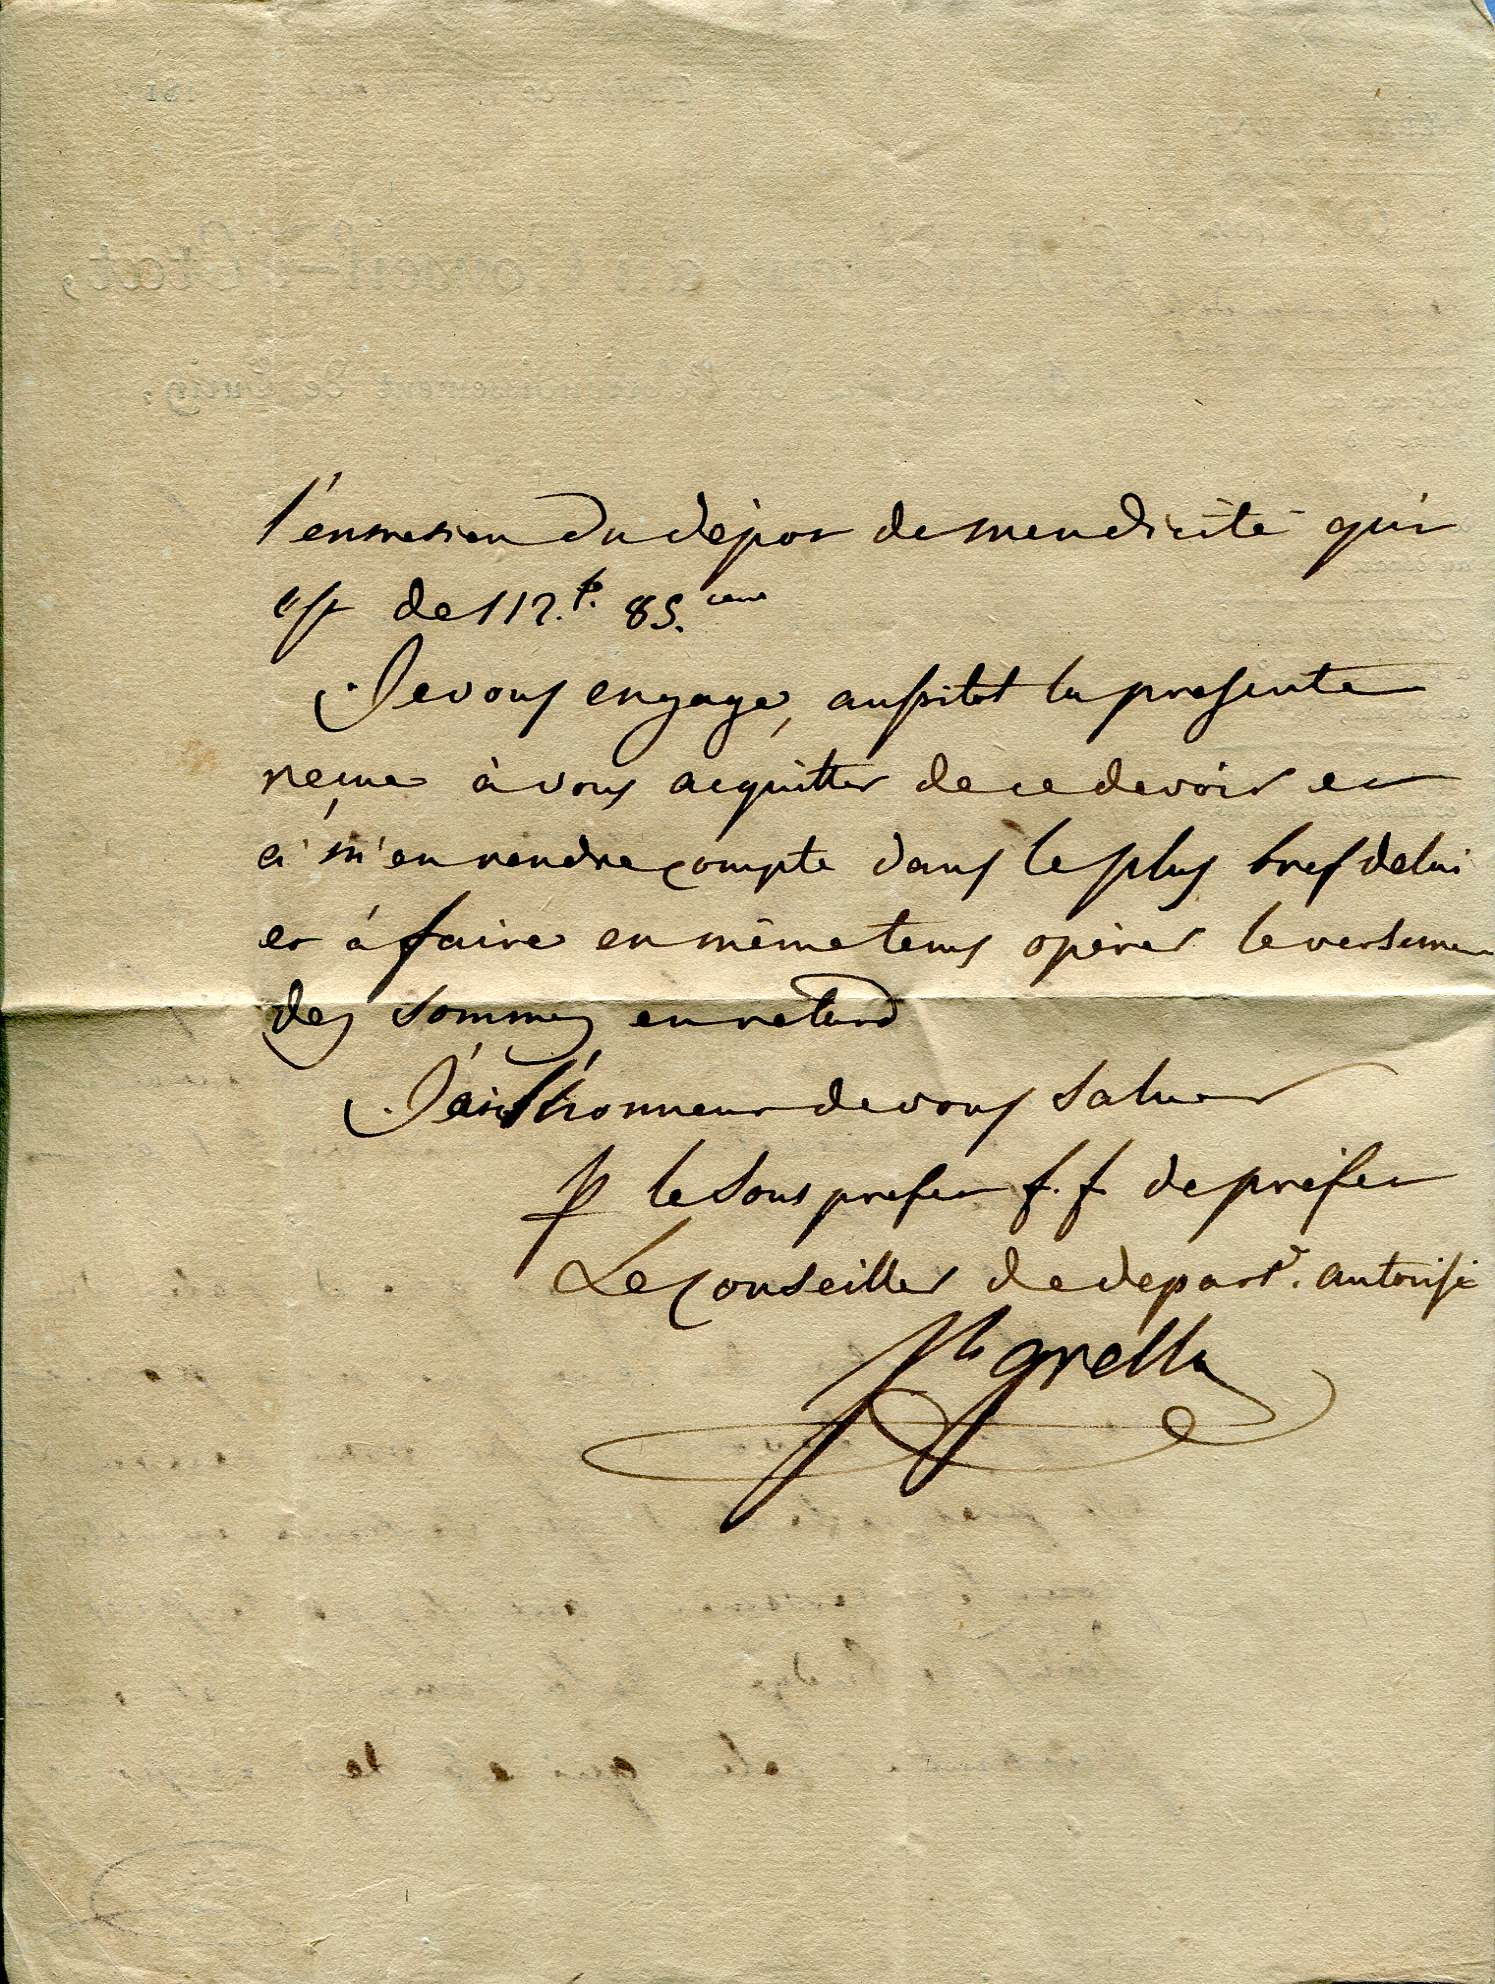 l'entretien du dépot de mendicité qui
est de 112.f. 85.cen
Je vous engage, aussitot la presente
reçue à vous acquitter de ce devoir et
à m'en rendre compte dans le plus bref delai
et à faire en même tems opèrer le versemen
des sommes en retard
J'ai l'honneur de vous saluer
p le Sous prefet f.f. de préfet
Le Conseiller de depart.t autorisé